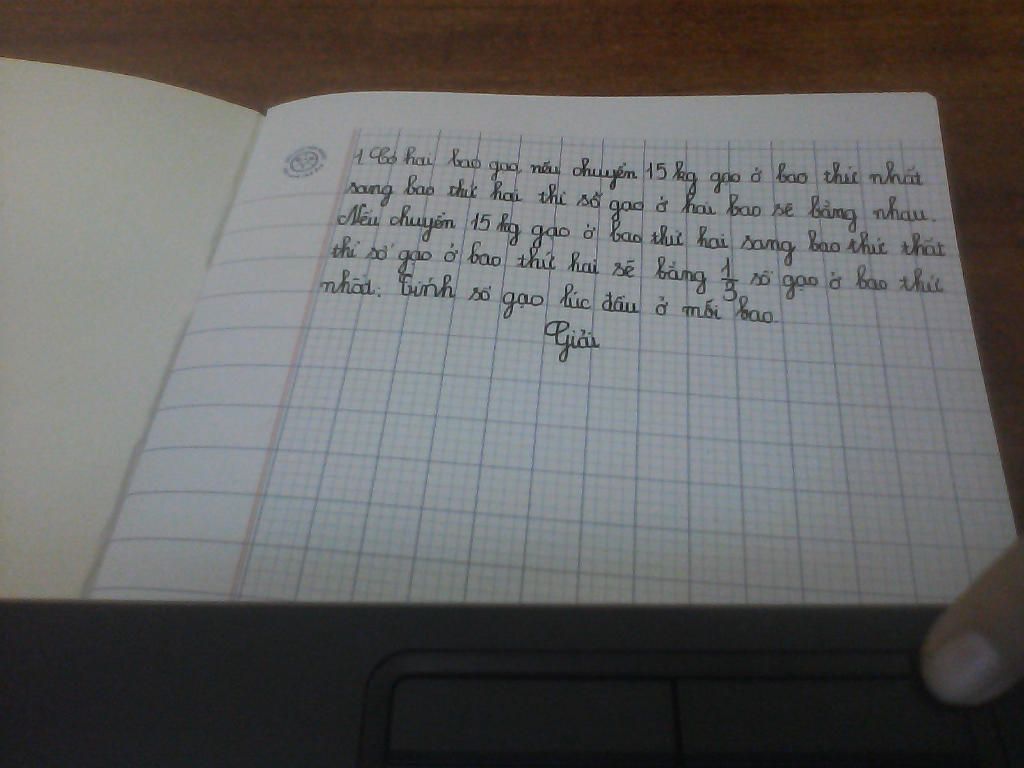 1 Có hai bao gạo, nếu chuyển 15 kg gạo ở bao thứ nhất
sang bao thứ hai thì số gạo ở hai bao sẽ bằng nhau.
Nếu chuyển 15 kg gạo ở bao thứ hai sang bao thứ thất
thì số gạo ở bao thứ hai sẽ bằng 1/3 số gạo ở bao thứ
nhất. Tính số gạo lúc đầu ở mỗi bao.
Giải